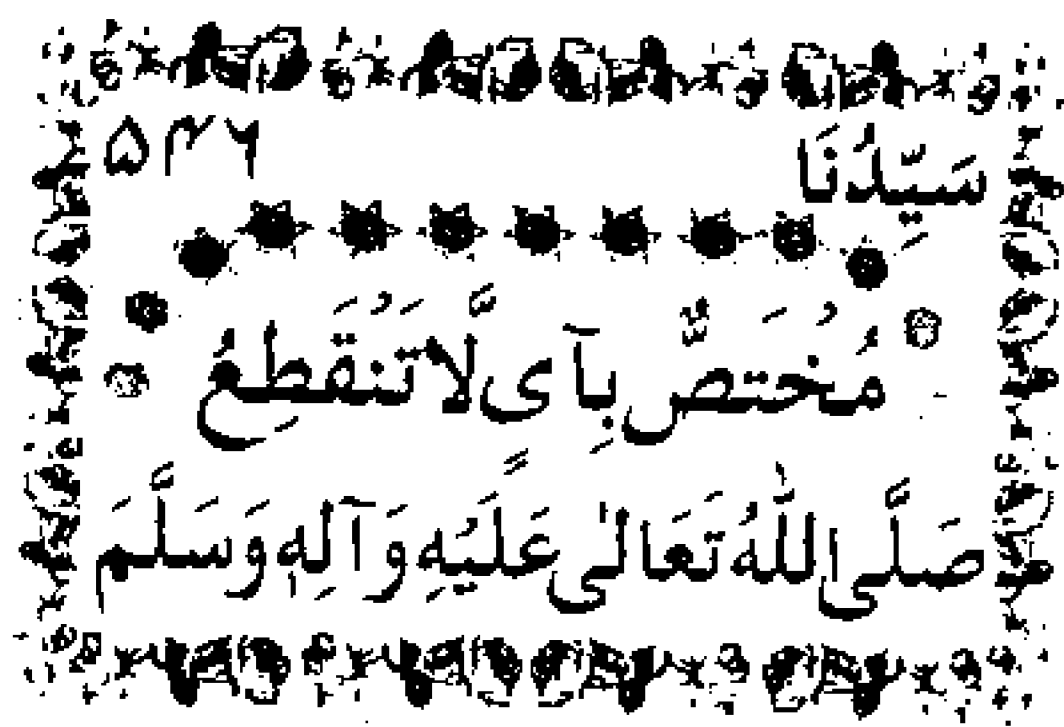 سَيِّدُنَا ۵۳۶
مُخْتَصٌّ بِآىٍ لَّا تَنْقَطِعُ
صَلَّى اللّٰهُ تَعَالٰى عَلَيْهِ وَآلِهٖ وَسَلَّمَ